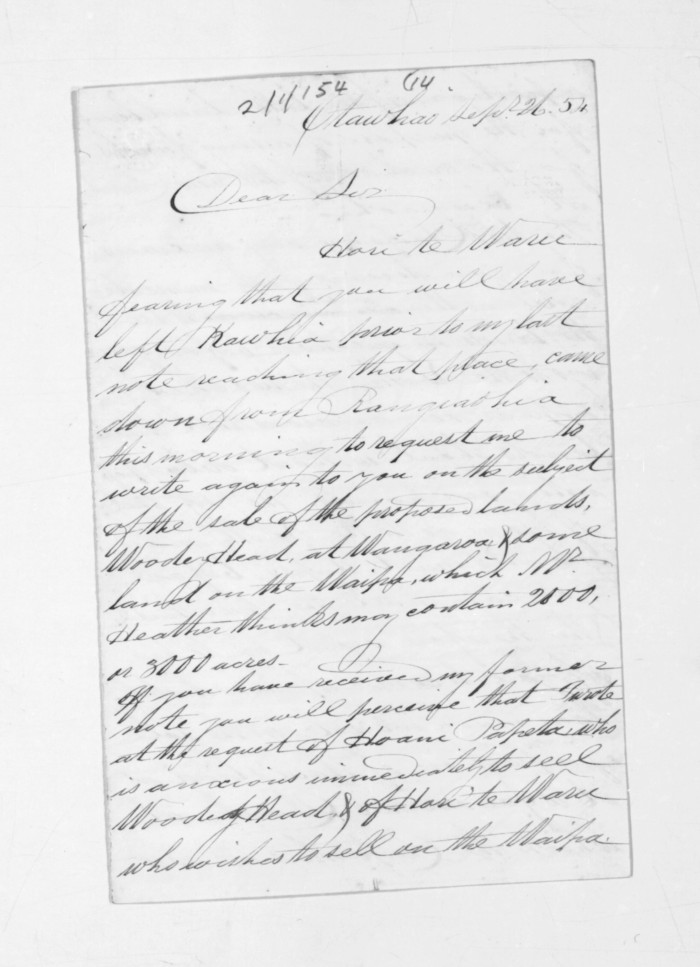 2/1/54 64.
Otawhao Sepr. 26. 54
Dear Sir
Hori te Waru
fearing that you will have
left Kawhia prior to my last
note reaching that place, came
down from Rangiaohia
this morning to request me to
write again to you on the subject
of the sale of the proposed lands,
Woody Head, at Wangaroa & some
land on the Waipa, which Mr.
Heather thinks may contain 2000,
or 3000 acres.
If you have received my former
note you will perceive that I wrote
at the request of Hoani Papita, who
is anxious immediately to sell
Woody Head, & of Hori te Waru
who wishes to sell on the Waipa.